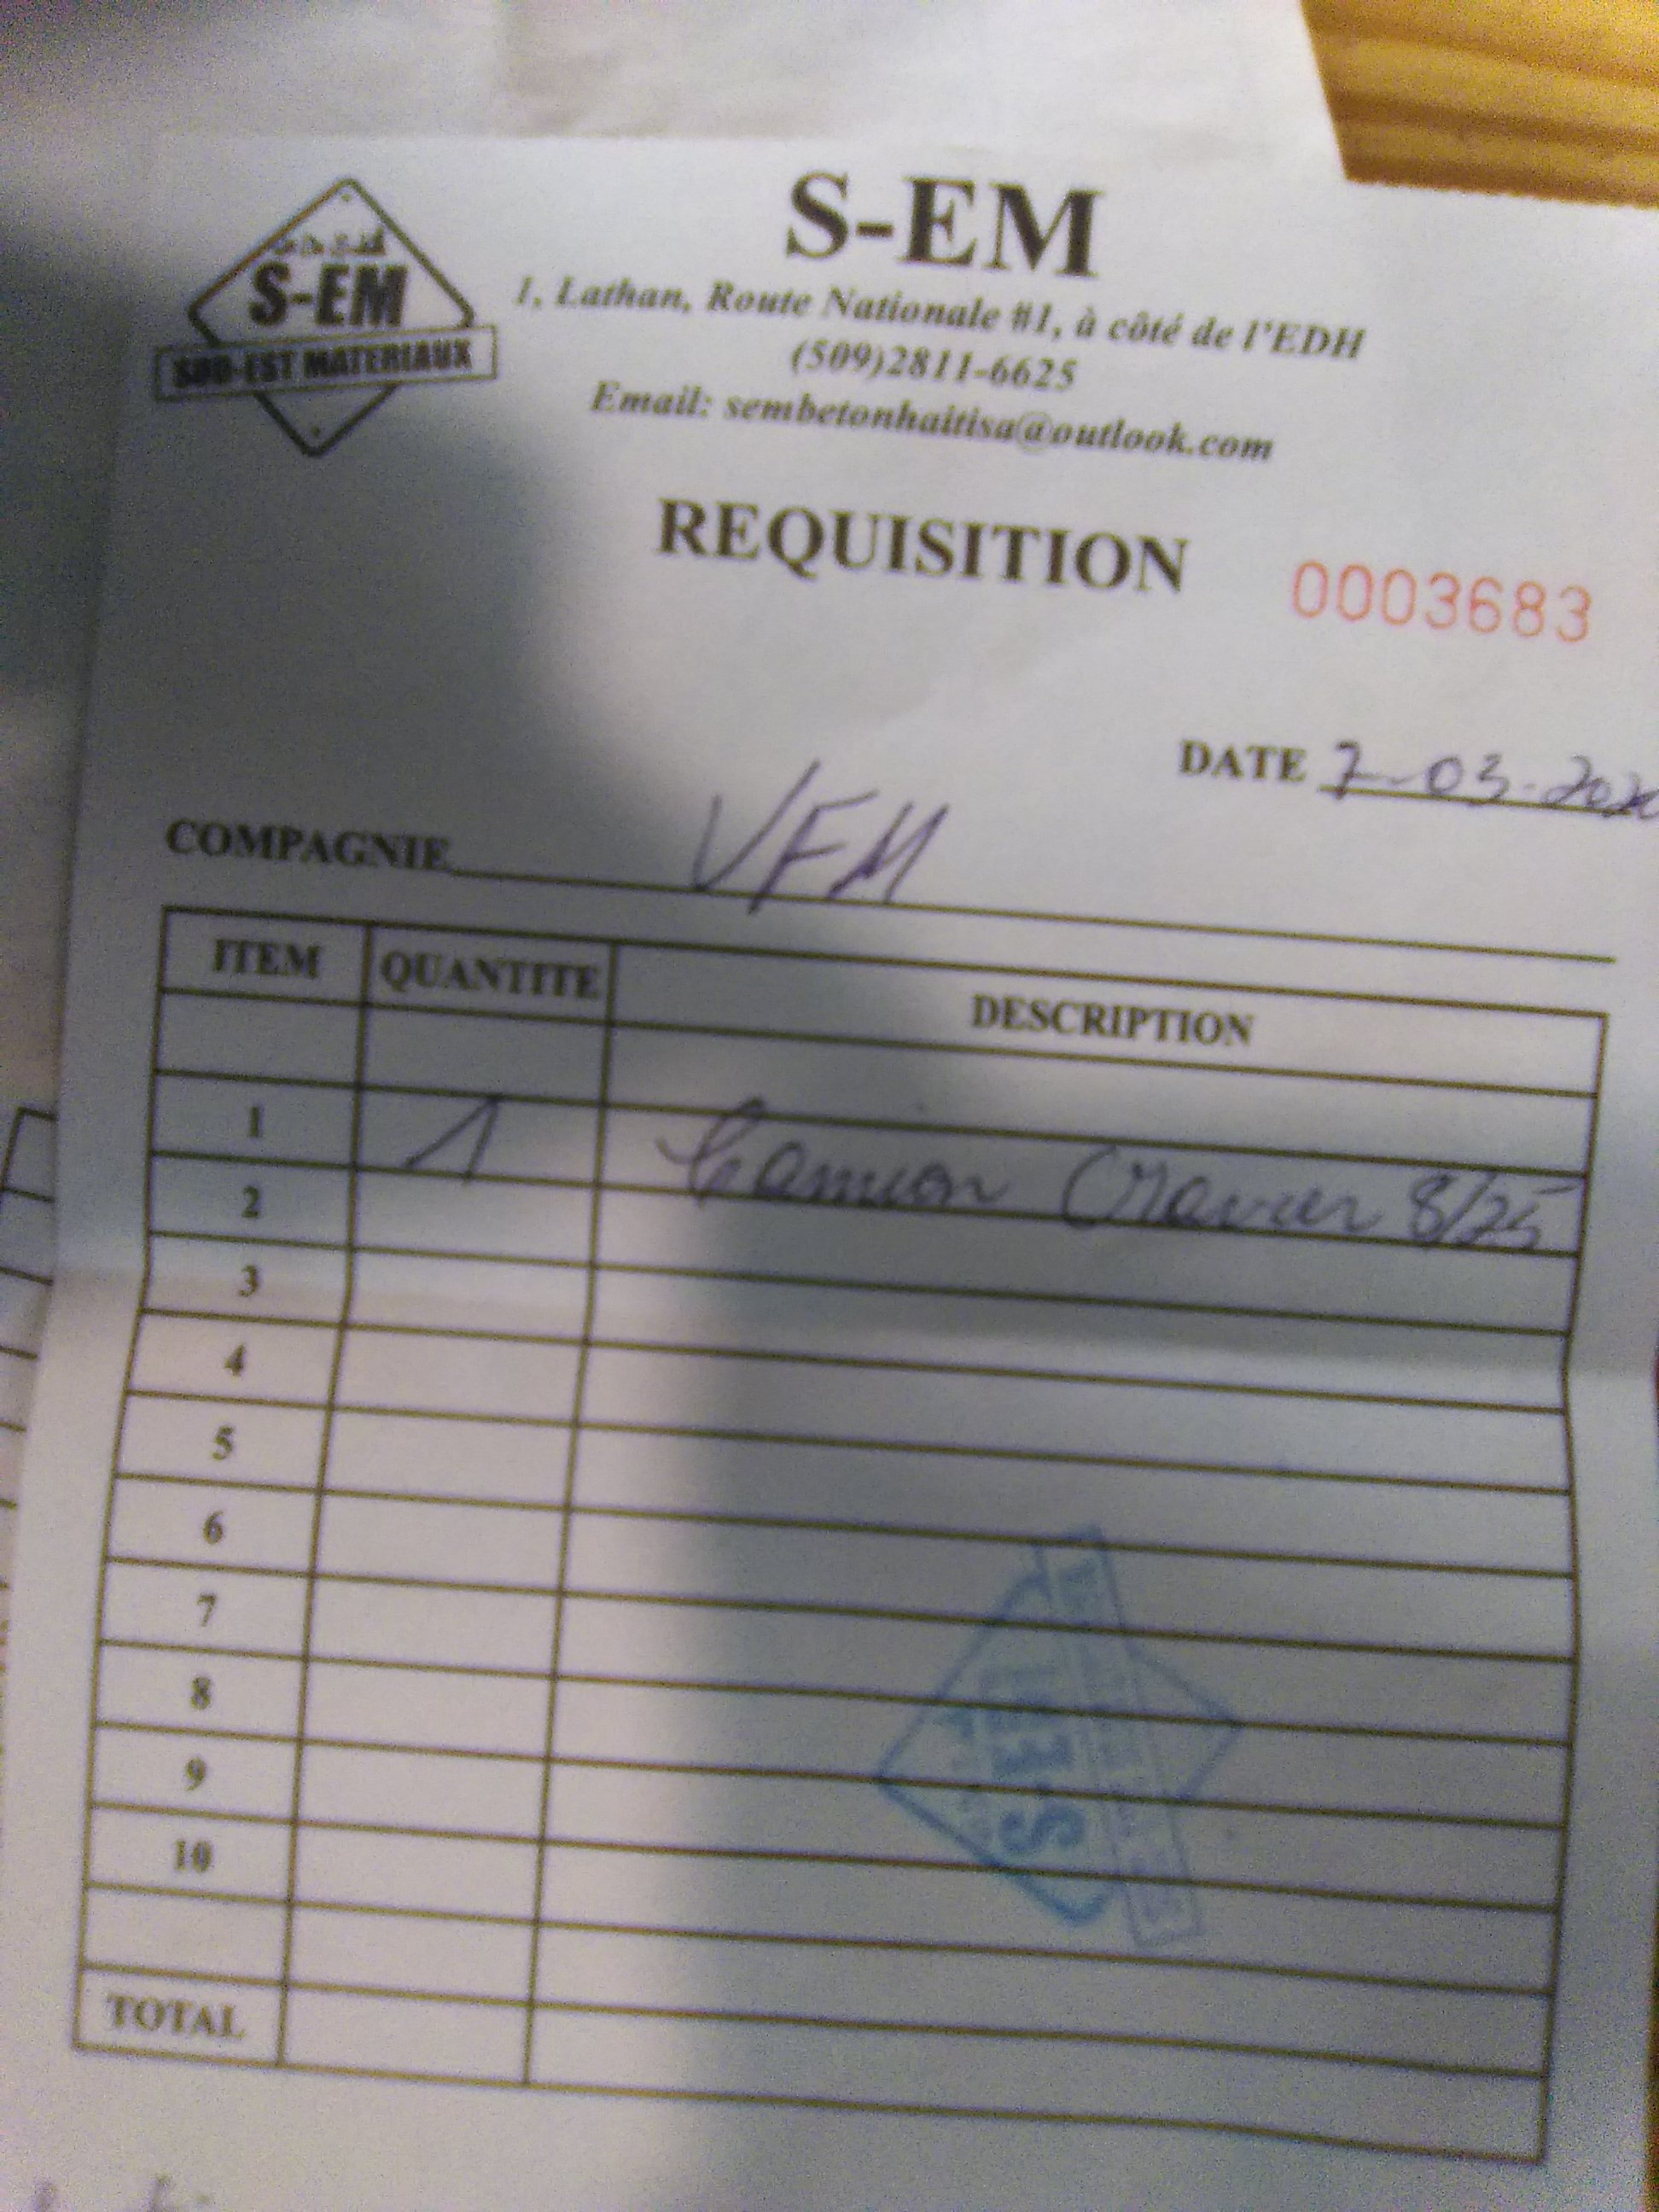 S-EM
SUD-EST MATERIAUX
S-EM
1, Lathan, Route Nationale #1, à côté de l'EDH
(509)2811-6625
Email: sembetonhaitisa@outlook.com
REQUISITION 0003683
DATE 7-03-2020
COMPAGNIE VFM
ITEM QUANTITE DESCRIPTION
1 1 Camion Gravier 8/25
2
3
4
5
6
7
8
9
10
S-EM
TOTAL